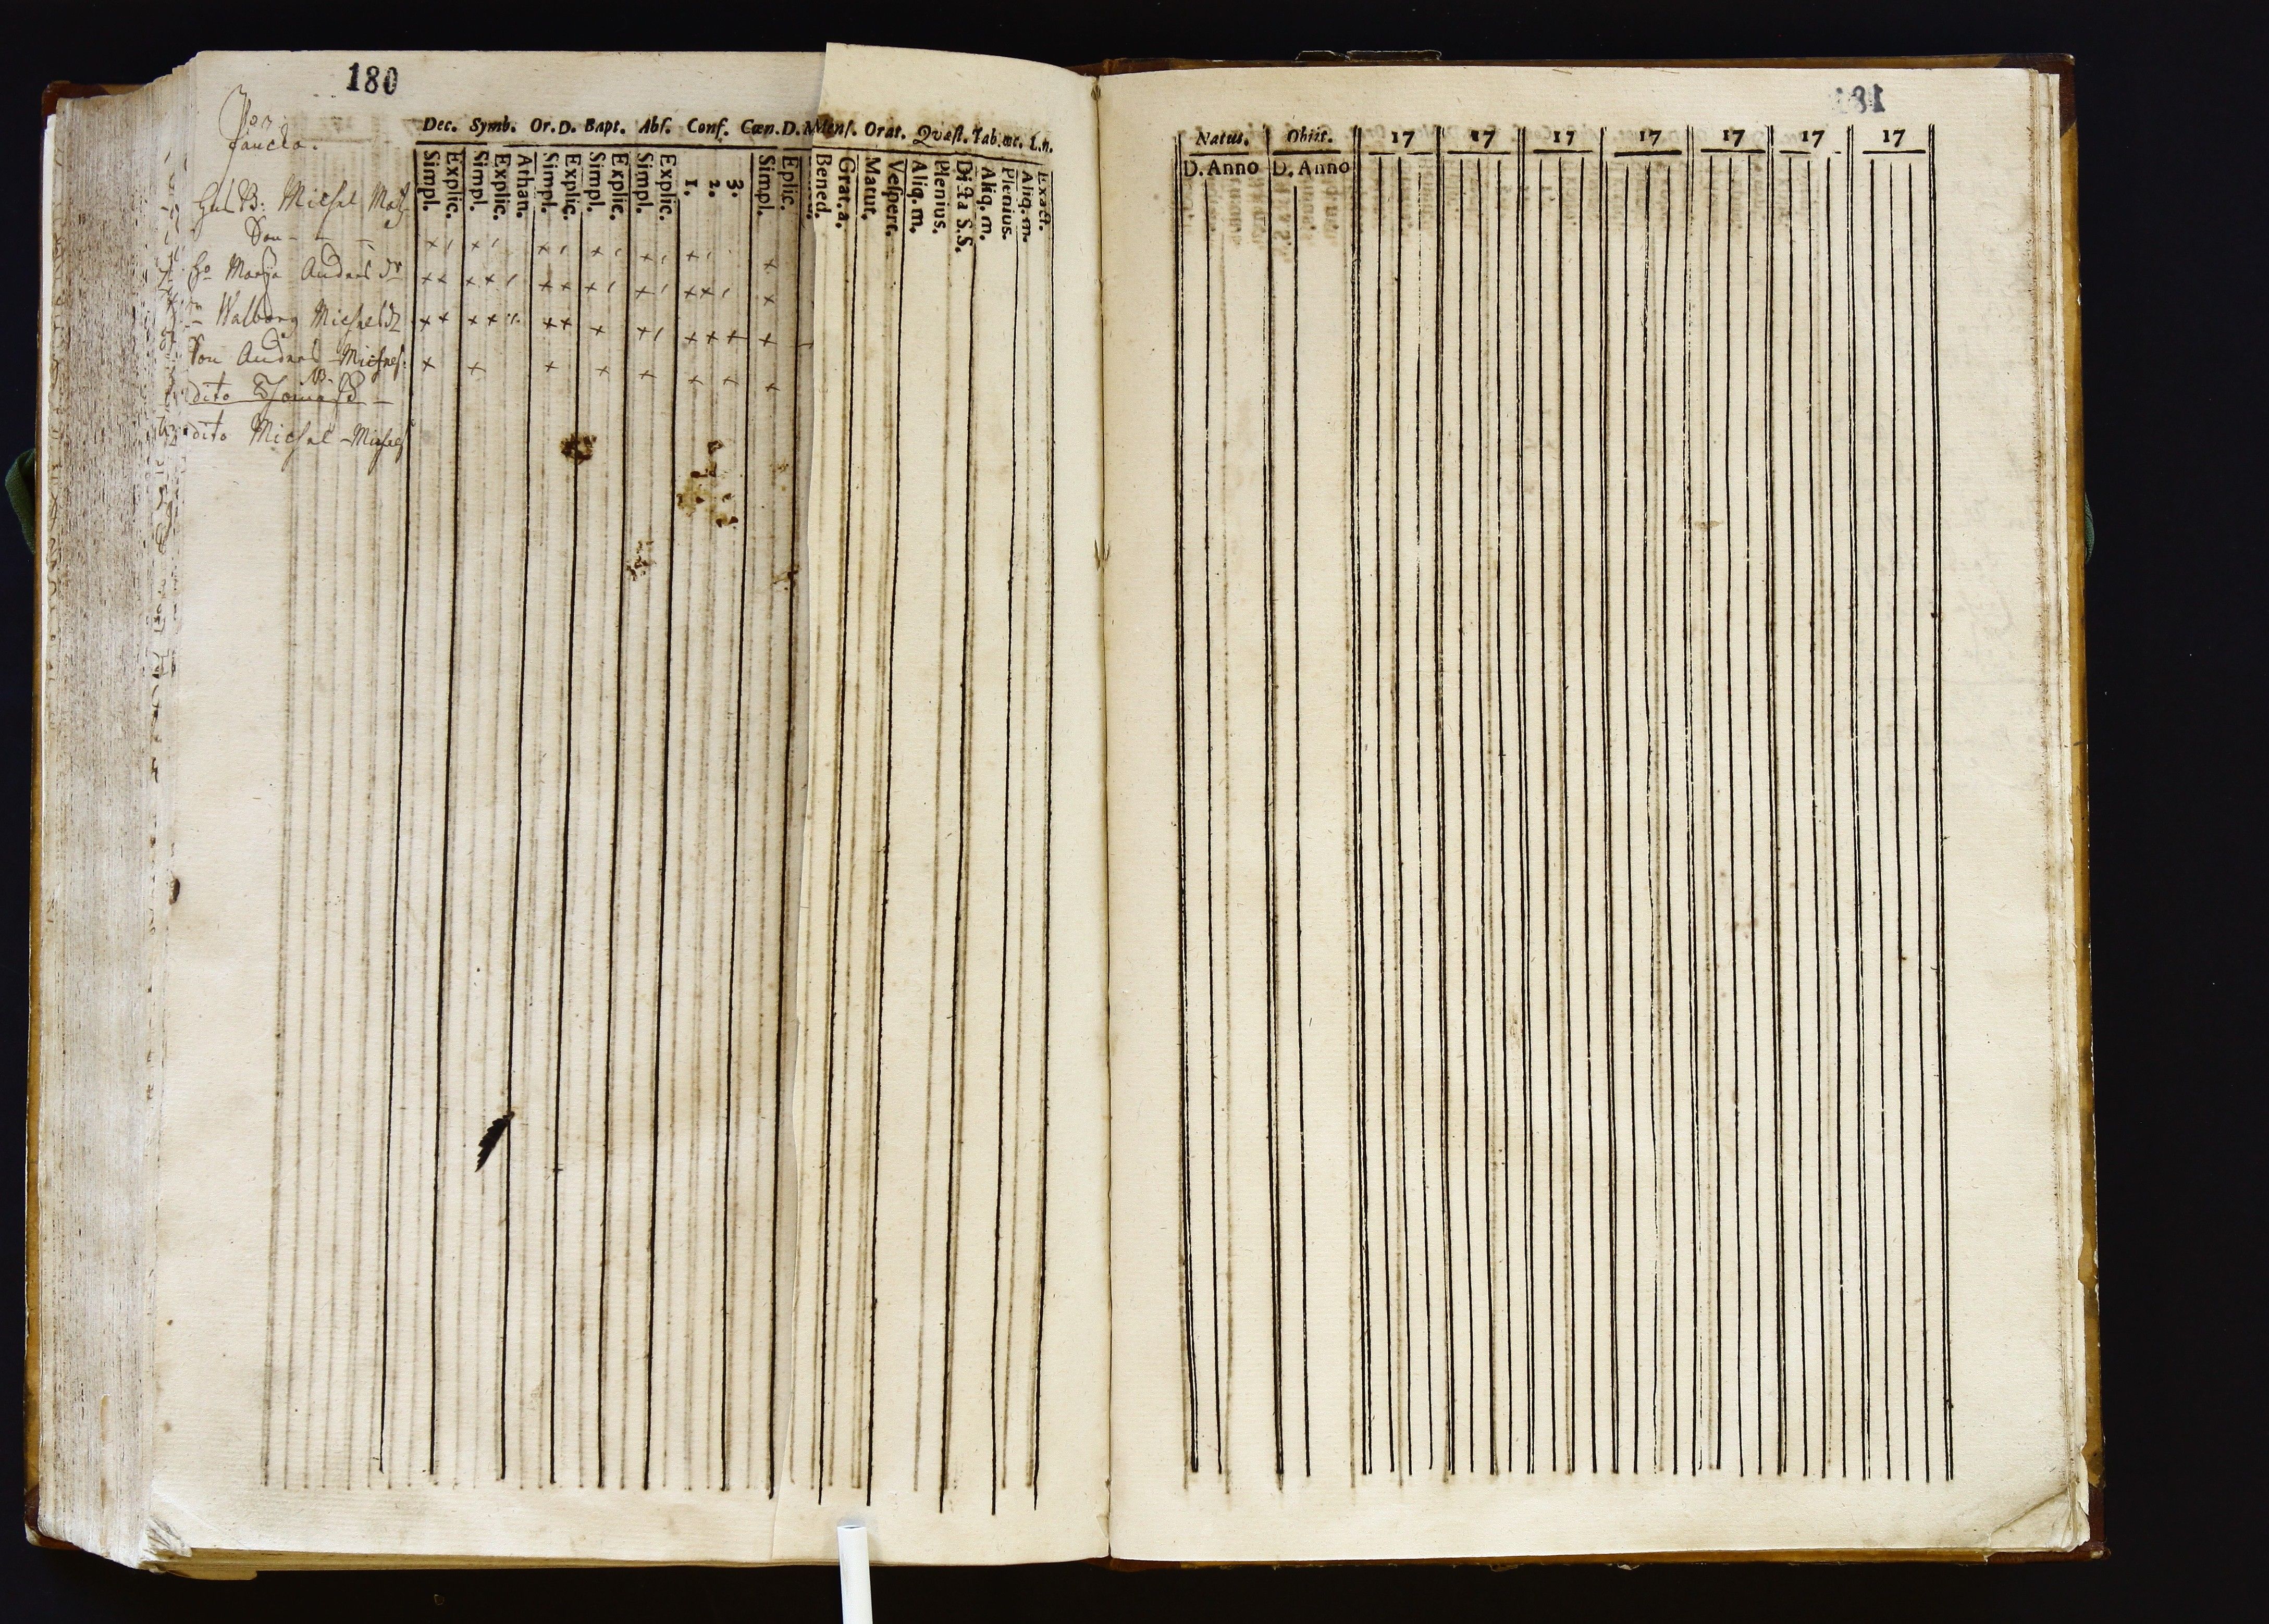 180
Dec. Symb. Or. D. Bapt. Abs. Conf. Cœn. D. Mens. Orat. Qvæst. Tab. œc. L. n.
Simpl. Explic. Simpl. Explic. Athan. Simpl. Explic. Simpl. Explic. Simpl. Explic. 1. 2. 3. Simpl. Eplic. Bened. Grat. a. Matut. Vesper. Aliq. m. Plenius. Dicta S.S. Aliq. m. Plenius. Aliq. m. Exact.
Michel
Son
Hu Marja Anders dr
Walborg Michelsdr
Son Anders Michels
dito Thomas
dito Michel Michels
181
Natus. Obiit. 17 17 17 17 17 17 17
D. Anno D. Anno